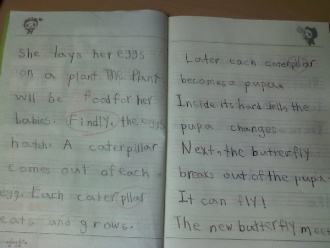 She lays her eggs
on a plant. This Plant
will be food for her
babies. Findly, the eggs
hatch. A caterpillar
comes out of each
egg. Each caterpillar
eats and grows.
Later each caterpillar
becomes a pupa.
Inside its hard shell, the
pupa changes
Next, the butterfly
breaks out of the pupa
It can fly!
The new butterfly meet